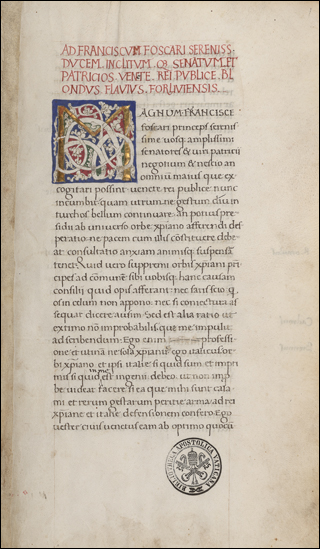 AD FRANCISCVM FOSCARI SERENISS
DVCEM INCLITVM SENATVM ET
PATRICIOS VENETE REI PVBLICE BL
ONDVS FLAVIVS FORLIVIENSIS
MAGNVM FRANCISCE
foscari princeps serenis
sime vosq amplissimi
senatores & viri patricii
negotium & nescio an
omnium maius que ex
cogitari possint venete rei publice nunc
incumbit quam utrum ne gestum diu in
turchos bellum continuare an potius pre
sidii ab universo orbe xpiano afferendi des
peratione pacem cum illis constituere debe
at consultatio anxiam animi suspensa
tenet Quid vero suppremi orbis xpiani pri
cipes ad comune sibi vobisq hanc causam
consilii quid opis afferant nec satis scio q
os in celum non appono nec si coniectura as
sequar dicere ausim Sed est alia ratio ut
extimo non improbabilis que me impulit
ad scribendum Ego enim professi
one et utina ne sola xpianus ego italicus or
bi xpiano et ipsi italie si quid sum et impri
mis si quid est ingenii debeo ut non imp
be videar facere si ea que mihi sunt casa
mi et rerum gestarum peritie arma ad rei
xpiane et italie defensionem confero Ego
vester civis venetus eam ab optimo quoq
BIBLIOTHECA APOSTOLICA VATICANA